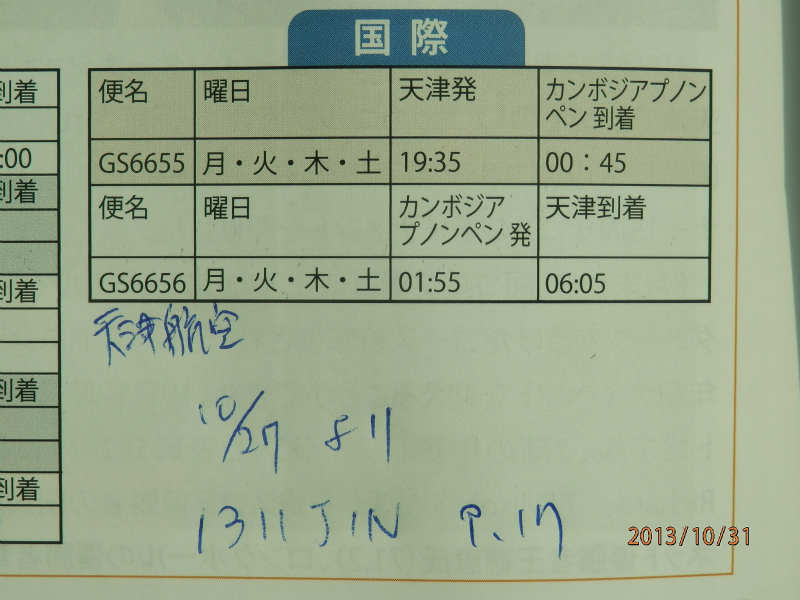 国際
到着
:00
到着
到着
到着
到着
便名 曜日 天津発 カンボジアプノン
ペン 到着
GS6655 月・火・木・土 19:35 00：45
便名 曜日 カンボジア 天津到着
プノンペン 発
GS6656 月・火・木・土 01:55 06:05
天津航空
10/27 より
1311 JIN P.17
2013/10/31